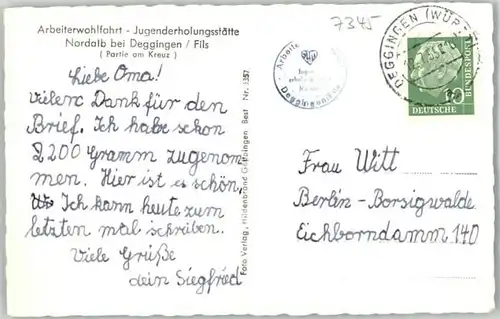 Arbeiterwohlfahrt - Jugenderholungsstätte
Nordalb bei Deggingen / Fils
( Partie am Kreuz )
Liebe Oma!
Vielen Dank für den
Brief. Ich habe schon
2200 Gramm zugenom
men. Hier ist es schön,
Ich kann heute zum
letzten mal schreiben.
Viele Grüße
dein Siegfried
Foto Verlag, Hildenbrand Göppingen Best Nr. 3357
7345
Arbeite
Deggingen
DEGGINGEN (WÜRTT
DEUTSCHE
BUNDESPOST
10
Frau Witt
Berlin-Borsigwalde
Eichborndamm 140